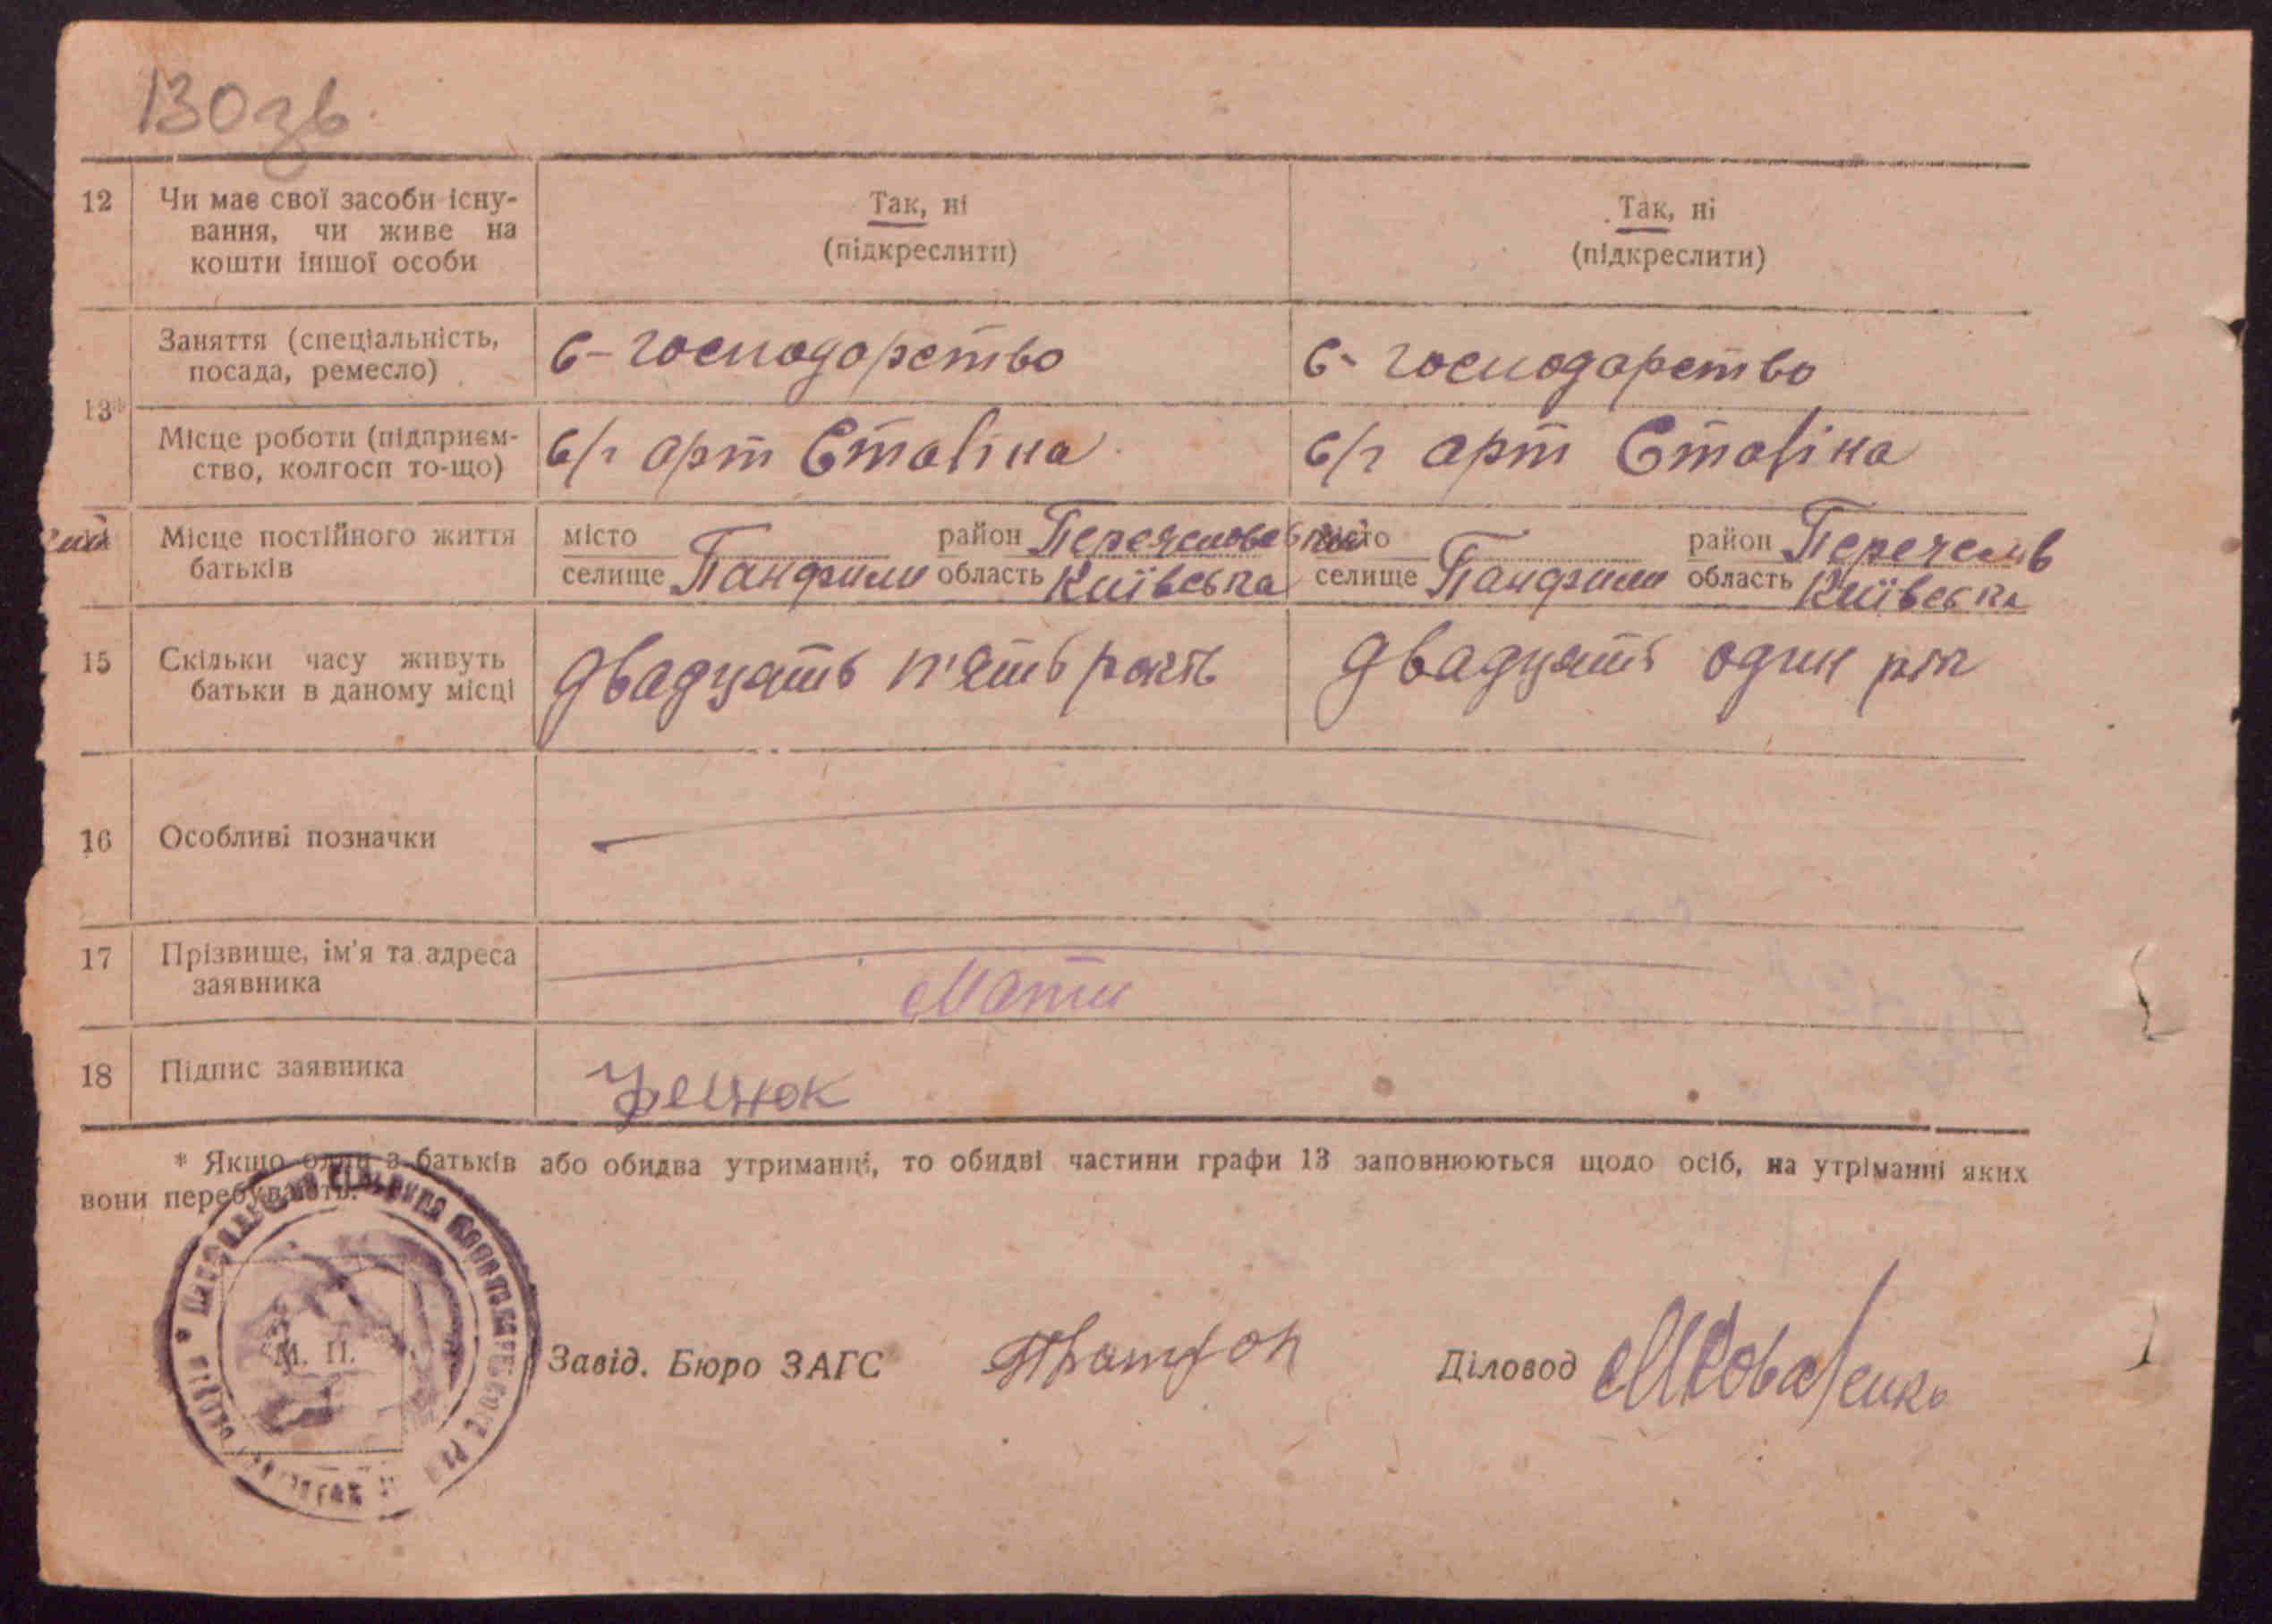 130зв
12 Чи має свої засоби існу-
вання, чи живе на
кошти іншої особи
Так, ні
(підкреслити)
Так, ні
(підкреслити)
13*
Заняття (спеціальність,
посада, ремесло)
с-господарство
с-господарство
Місце роботи (підприєм-
ство, колгосп то-що)
с/г арт Сталіна
с/г арт Сталіна
Місце постійного життя
батьків
місто
селище Панфили
район
область Київська
місто
селище Панфили
район
область Київська
15 Скільки часу живуть
батьки в даному місці
двадцать п'ять років
двадцать один рік
16 Особливі позначки
17 Прізвище, ім'я та адреса
заявника
Мати
18 Підпис заявника
* Якщо один з батьків або обидва утриманці, то обидві частини графи 13 заповнюються щодо осіб, на утріманні яких
вони перебувають.
М. П.
Завід. Бюро ЗАГС
Діловод МКоваленко